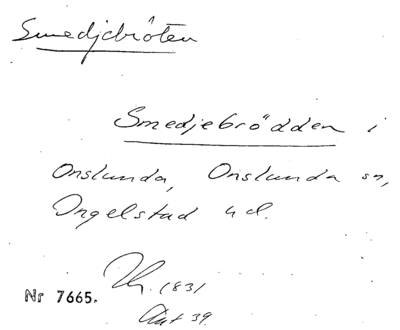 Smedjebröten
Smedjebrödden i
Onslunda, Onslunda sn,
Ingelstad hd.
1831
Nr 7665.
Akt 39.